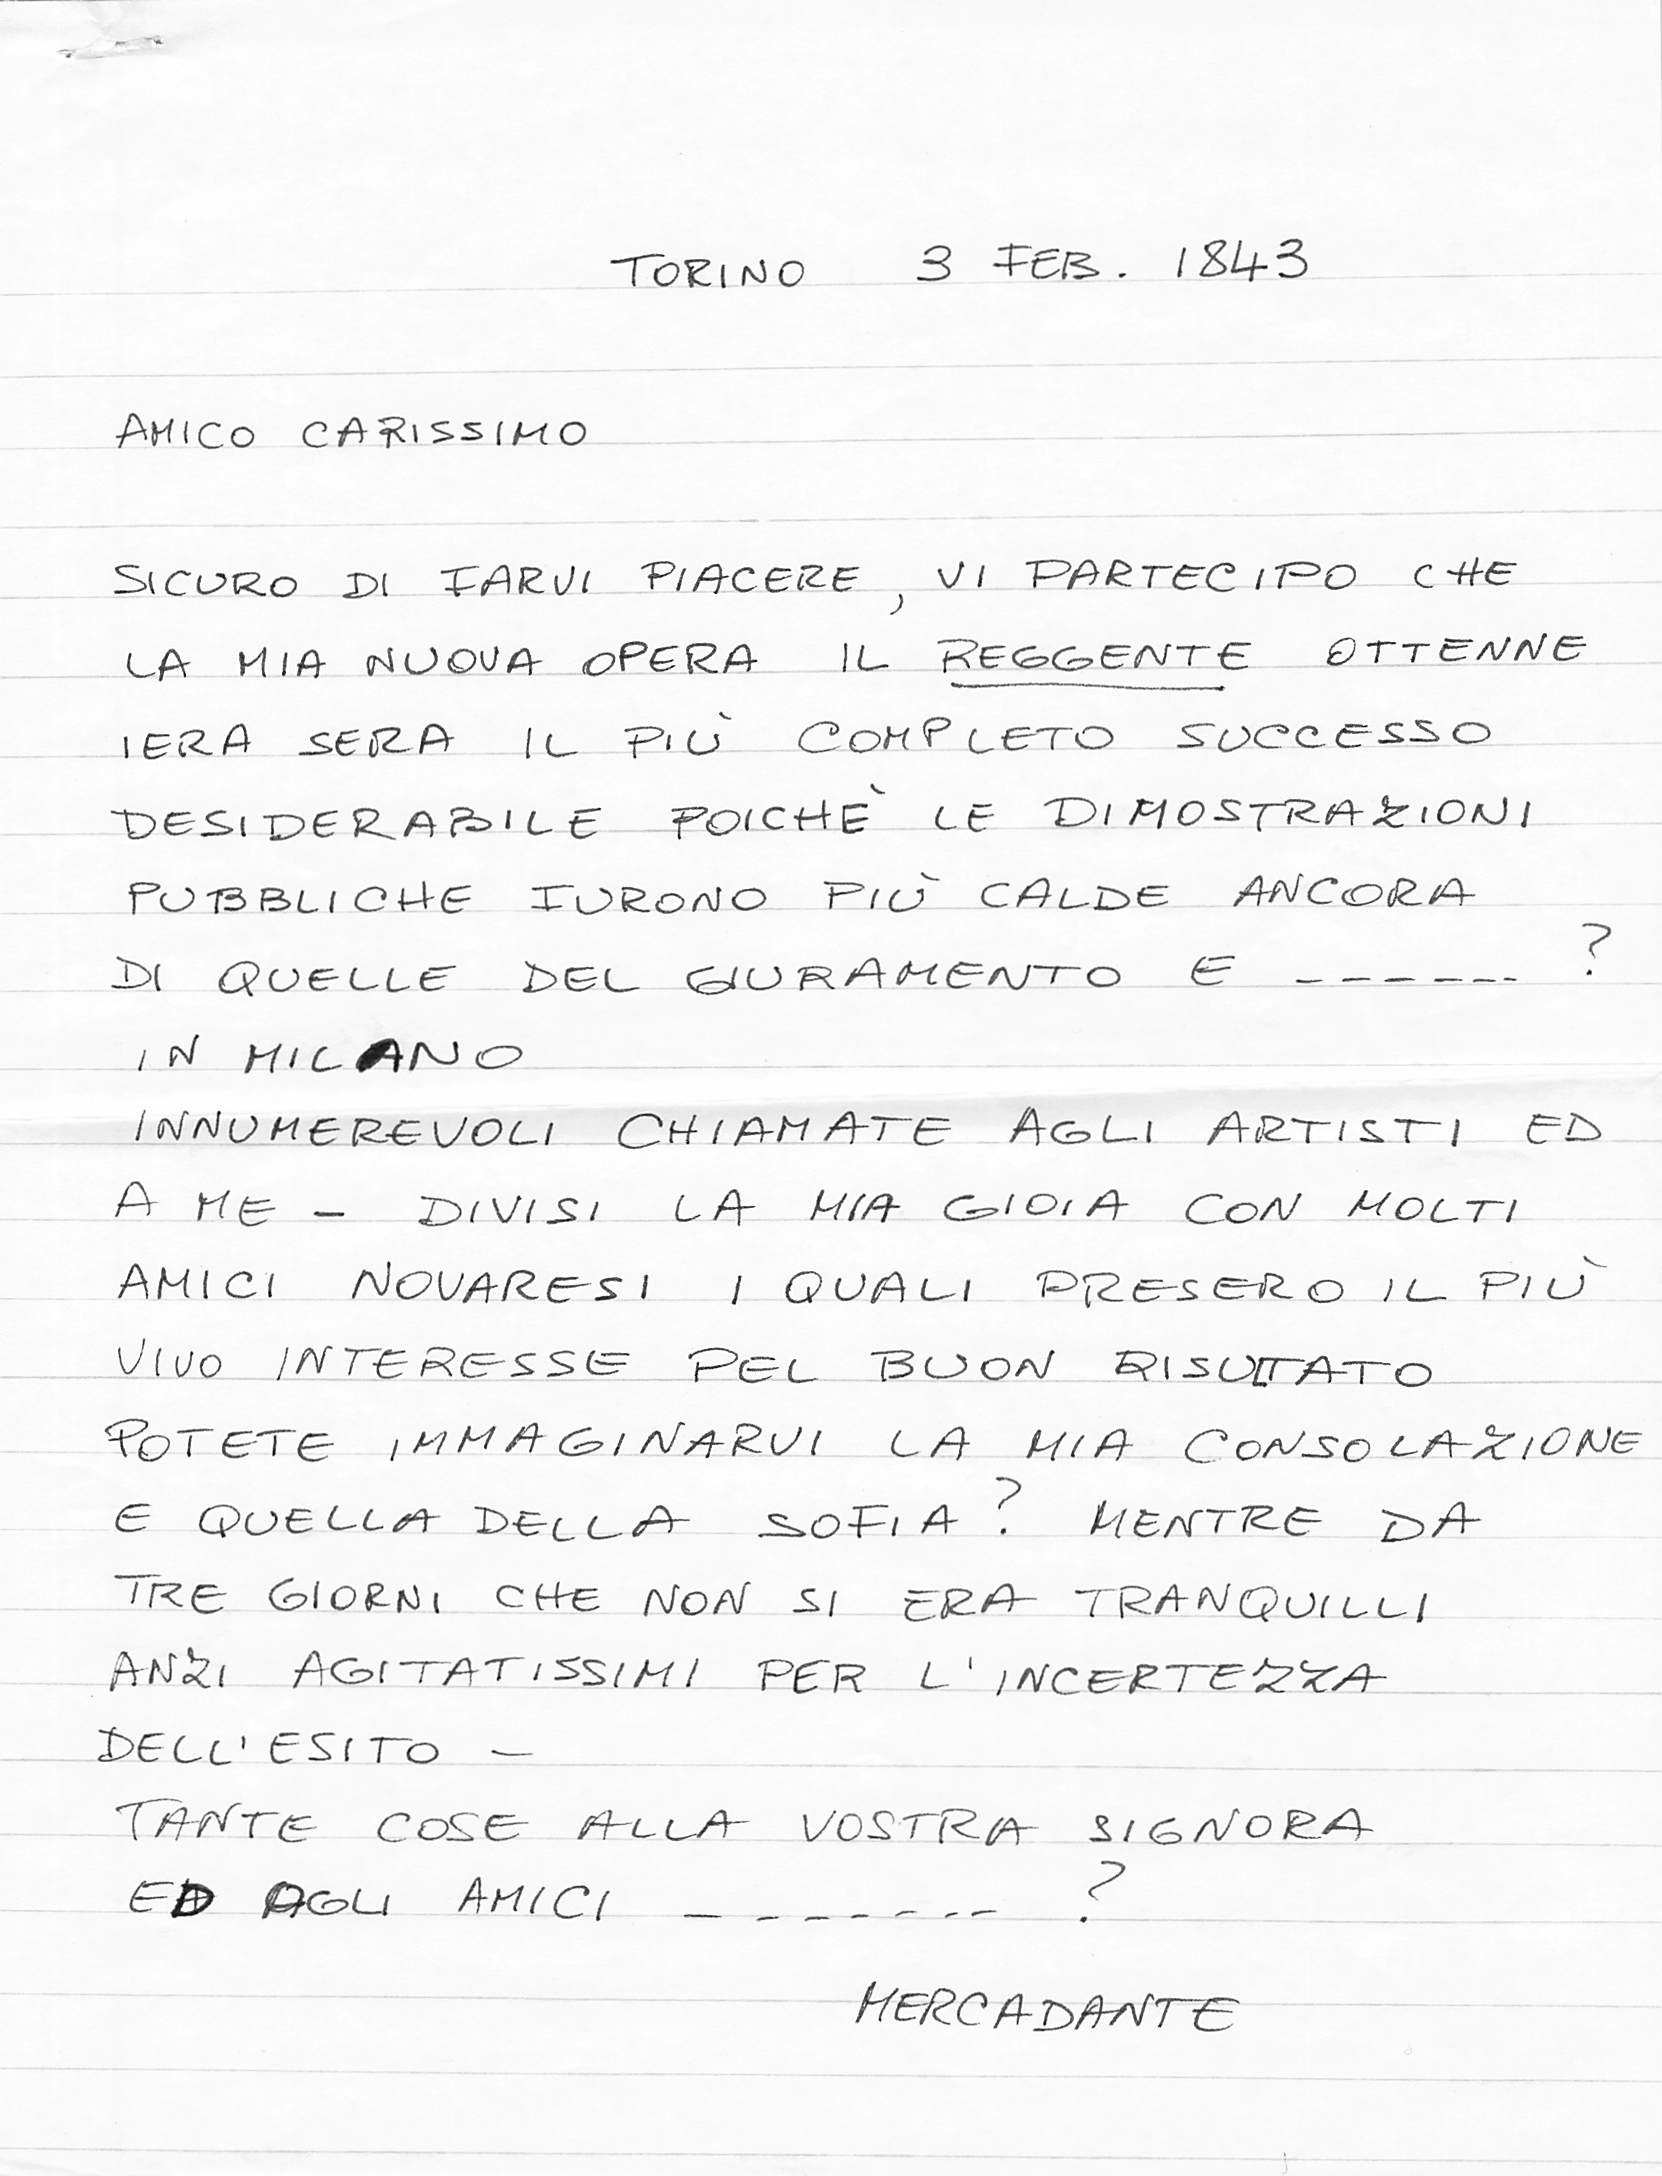 TORINO 3 FEB. 1843
AMICO CARISSIMO
SICURO DI FARVI PIACERE, VI PARTECIPO CHE
LA MIA NUOVA OPERA IL REGGENTE OTTENNE
IERA SERA IL PIÙ COMPLETO SUCCESSO
DESIDERABILE POICHÈ LE DIMOSTRAZIONI
PUBBLICHE FURONO PIÙ CALDE ANCORA
DI QUELLE DEL GIURAMENTO E ------ ?
IN MILANO
INNUMEREVOLI CHIAMATE AGLI ARTISTI ED
A ME - DIVISI LA MIA GIOIA CON MOLTI
AMICI NOVARESI I QUALI PRESERO IL PIÙ
VIVO INTERESSE PEL BUON RISULTATO
POTETE IMMAGINARVI LA MIA CONSOLAZIONE
E QUELLA DELLA SOFIA? MENTRE DA
TRE GIORNI CHE NON SI ERA TRANQUILLI
ANZI AGITATISSIMI PER L'INCERTEZZA
DELL'ESITO -
TANTE COSE ALLA VOSTRA SIGNORA
ED AGLI AMICI ------- ?
MERCADANTE